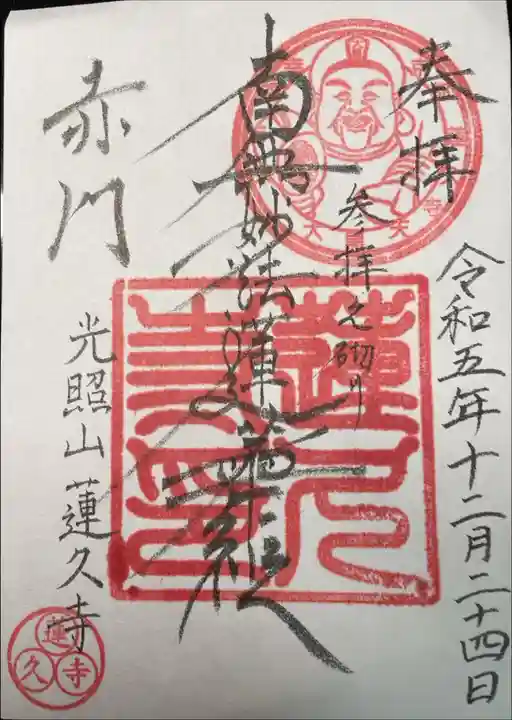 奉拝
令和五年十二月二十四日
参拝之砌リ
南無妙法蓮華経
赤門
光照山蓮久寺
蓮久寺印
蓮久寺